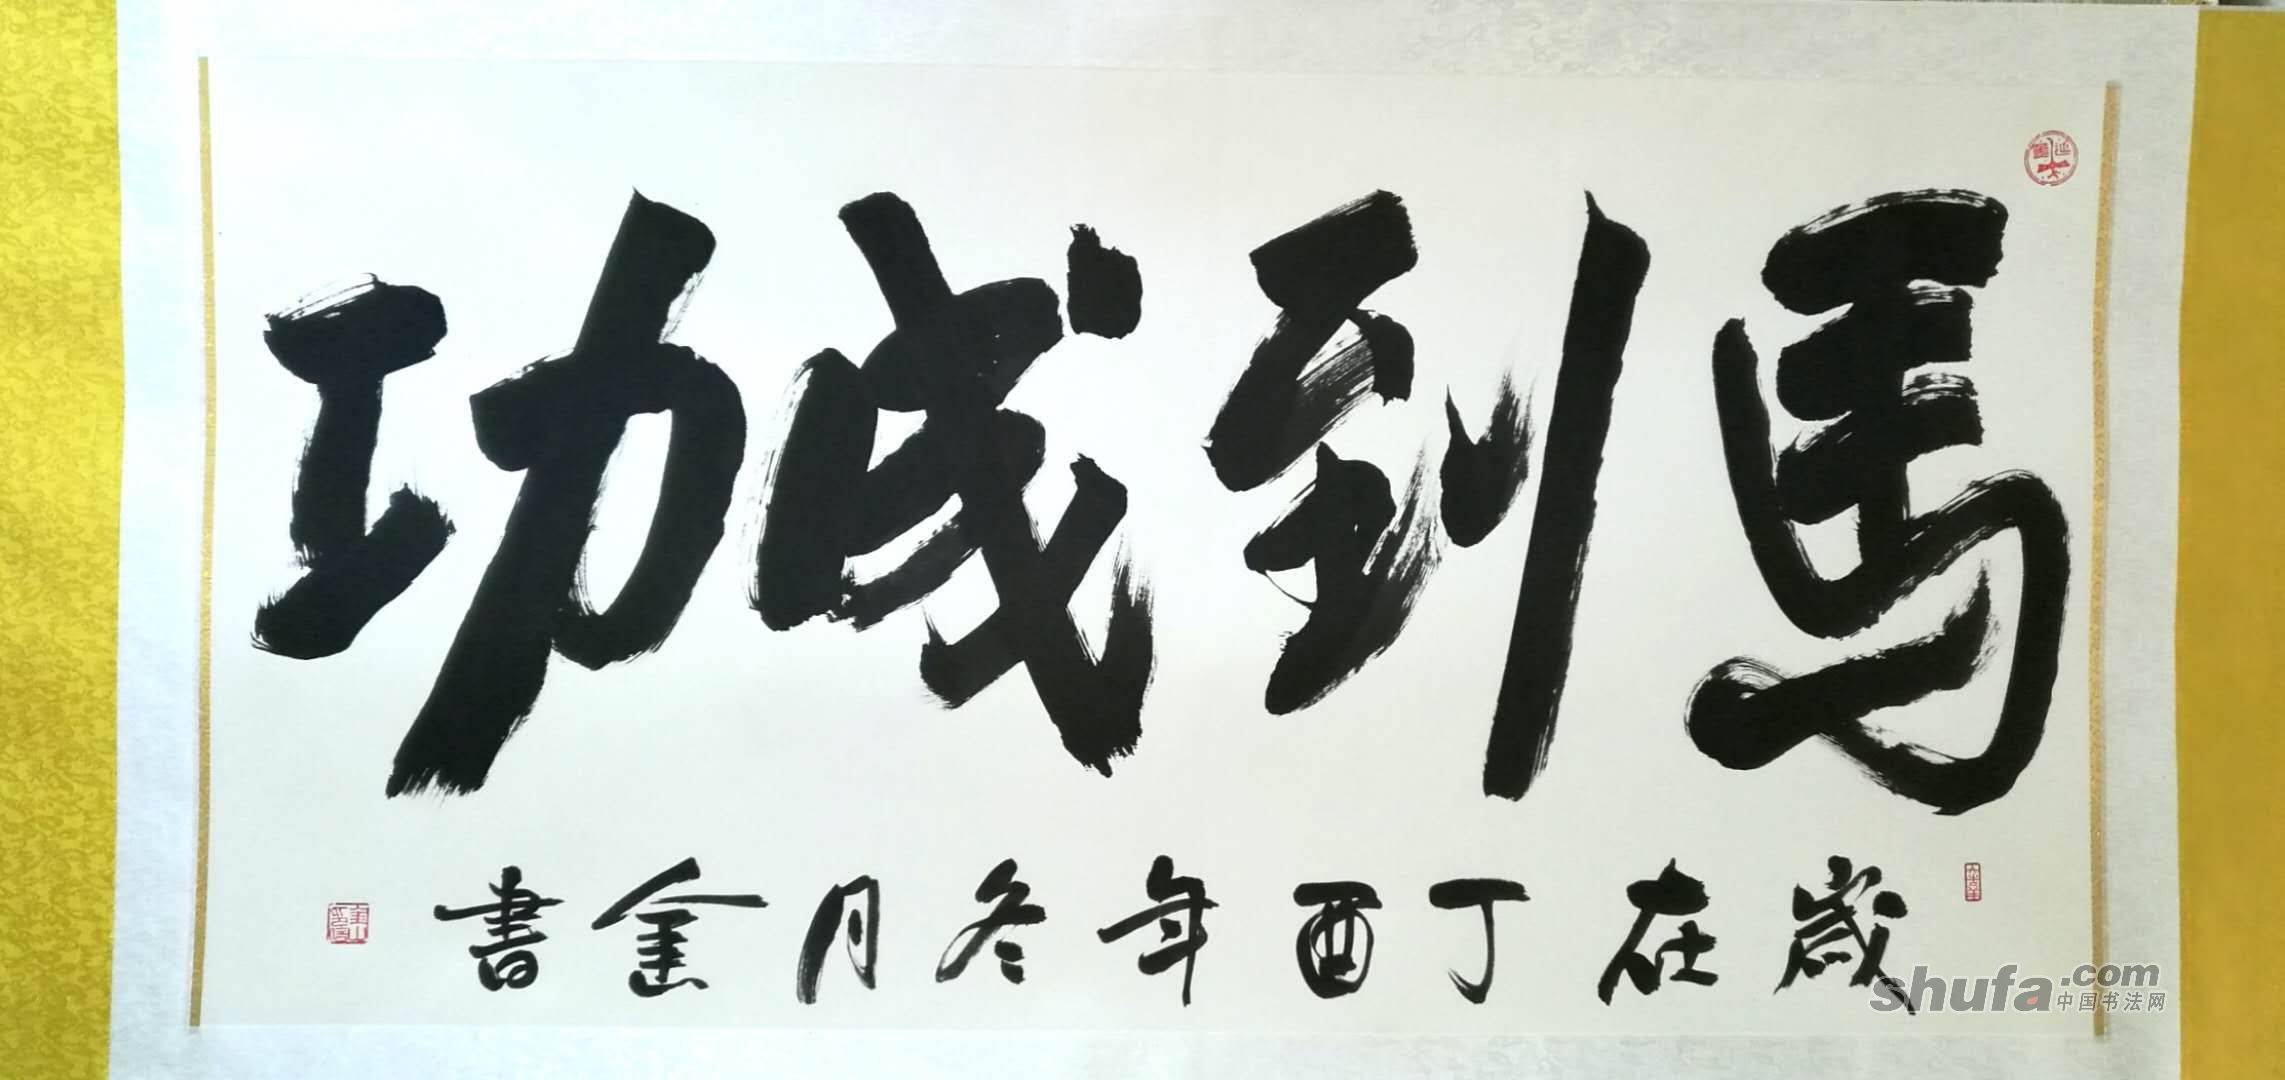 馬到成功
歲在丁酉年冬月金書
shufa.com
中国书法网